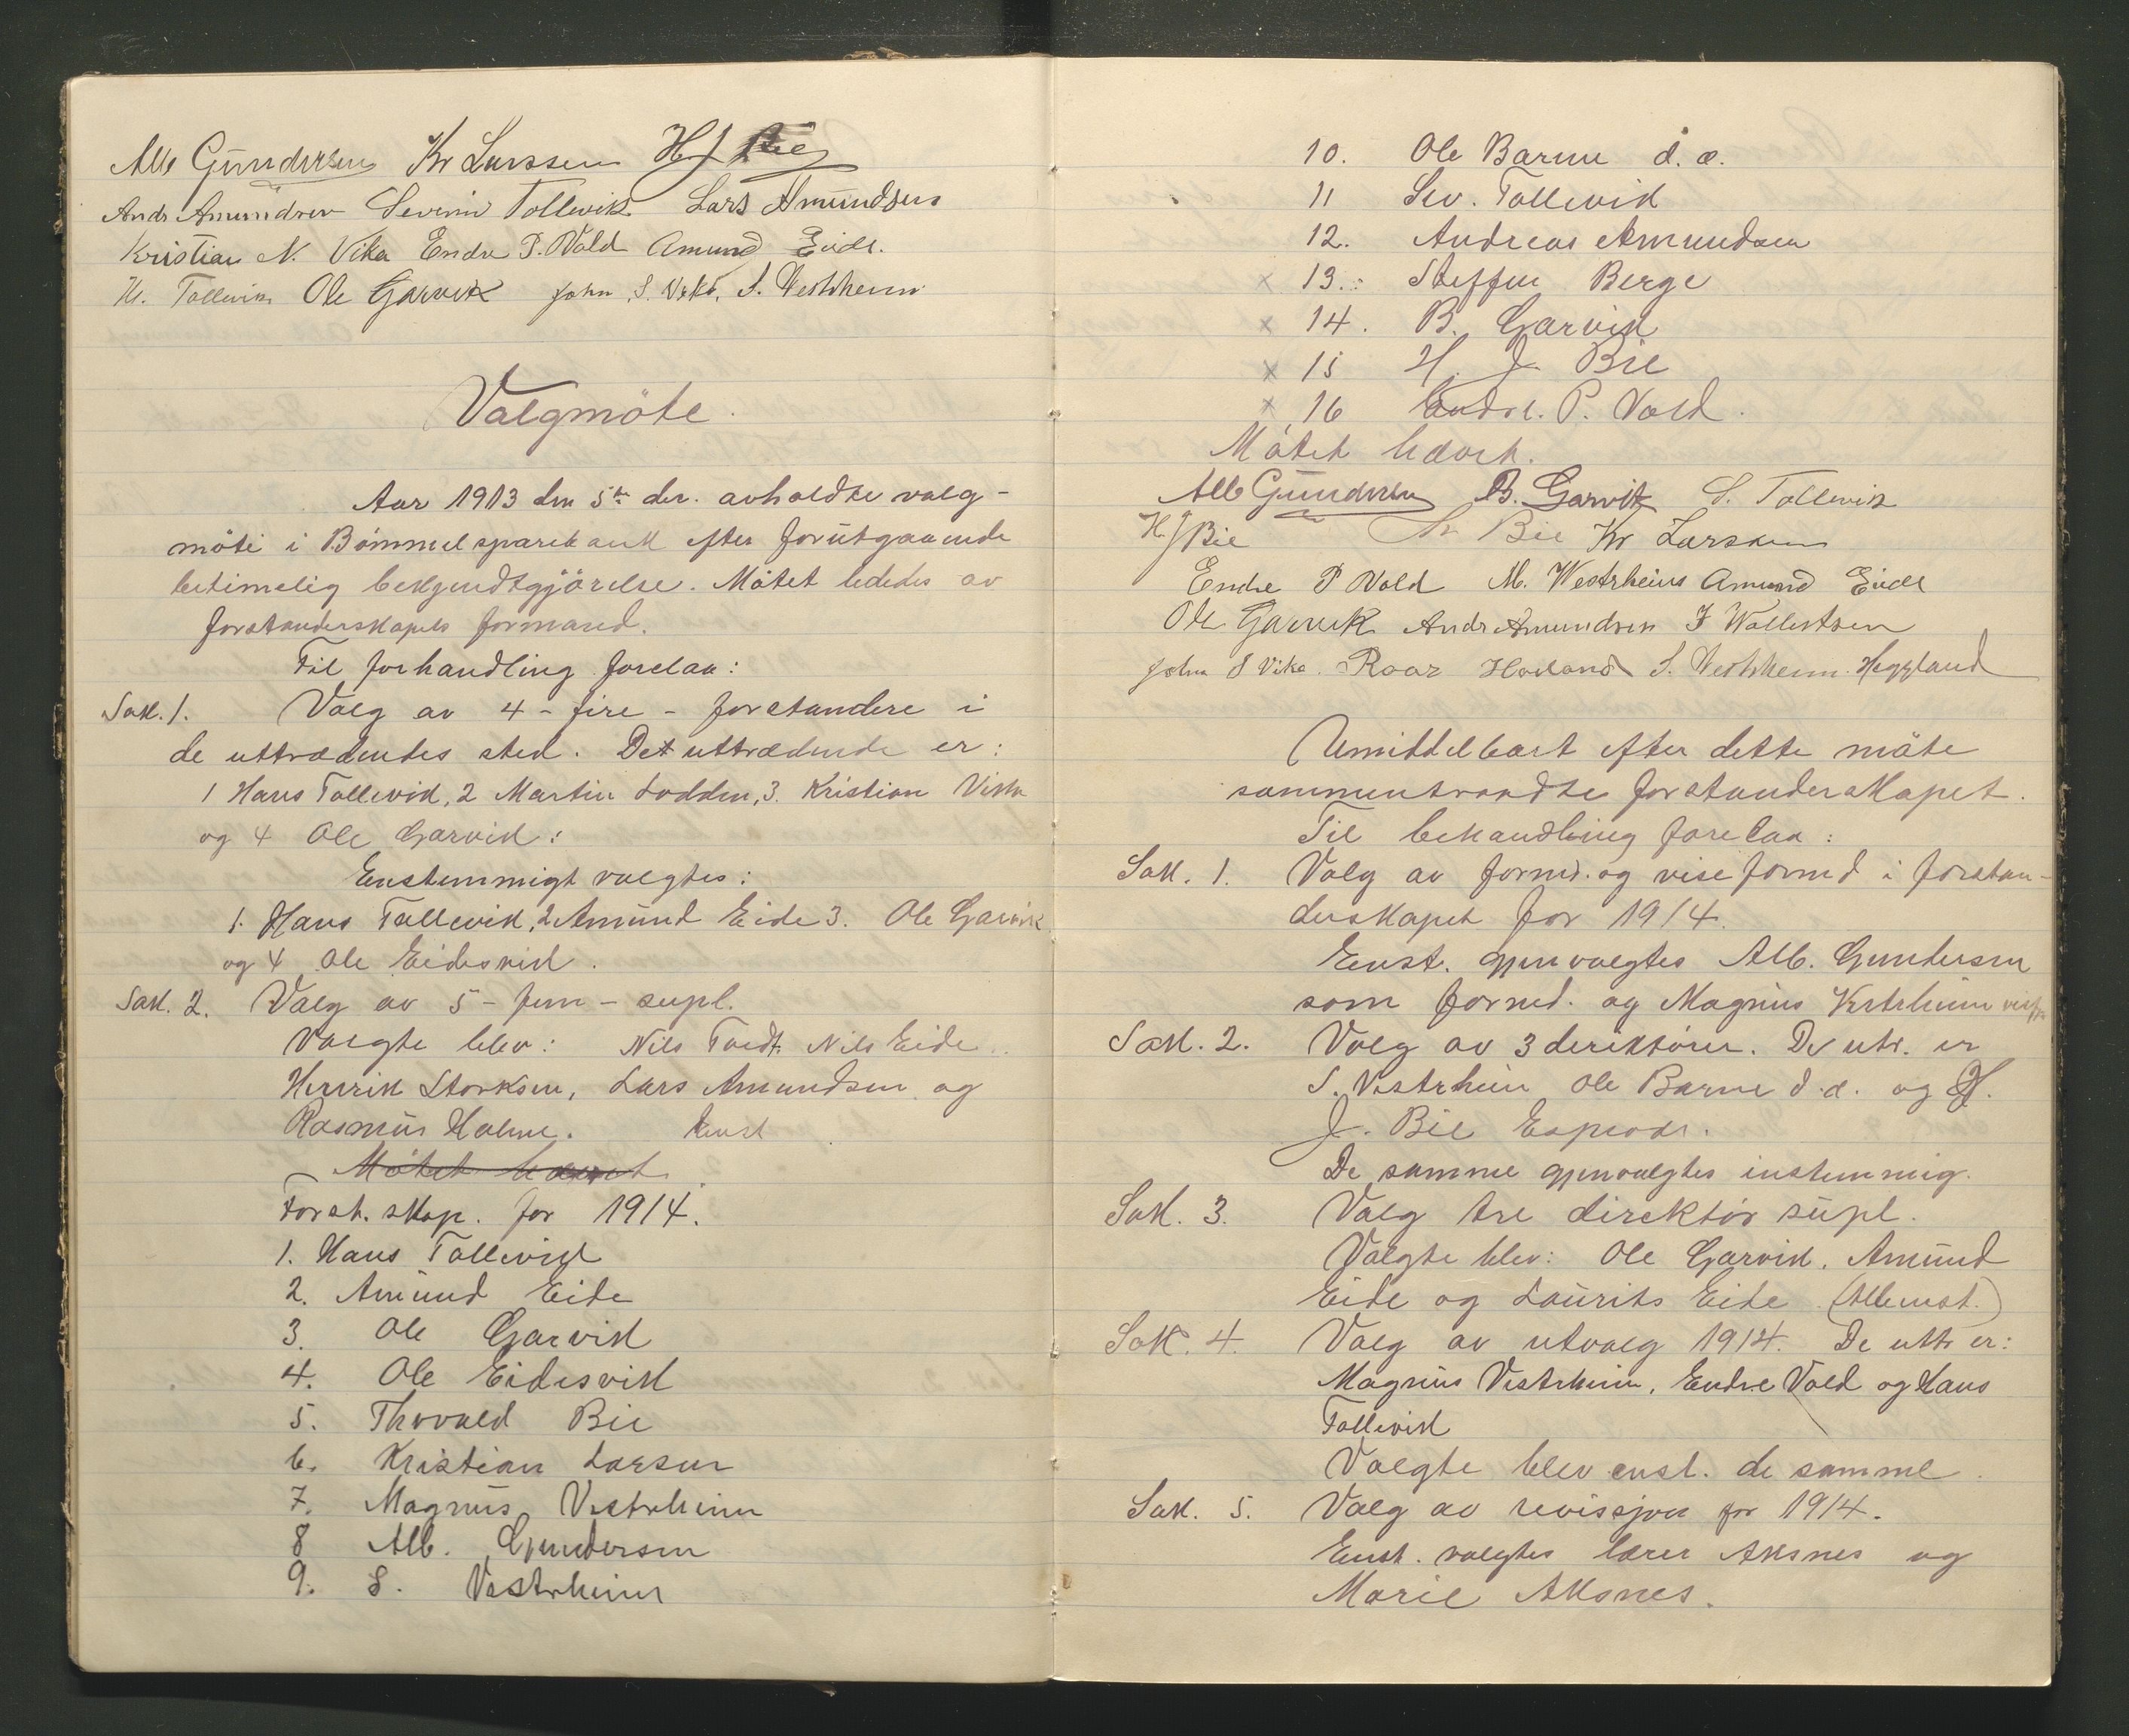 Alb Gundersen Kr Larssen H J Bie
Andr Amundsen Severin Tollevik Lars Amundsen
Kristian N. Vika Endre P. Vold Amund Eide.
H. Tollevik Ole Garvik John S. Vika, S. Vestrheim
Valgmöte.
Aar 1913 den 5te des. avholdte valg-
möte i Bömmel sparebank efter forutgaaende
betimelig bekjendtgjörelse. Mötet lededes av
forstanderskapets formand.
Til forhandling forelaa:
Sak. 1. Valg av 4 - fire - forstandere i
de uttrædendes sted. De uttrædende er:
1 Hans Tollevik, 2 Martin Lodden, 3. Kristian Vika
og 4 Ole Garvik:
Enstemmigt valgtes:
1. Hans Tollevik, 2 Amund Eide 3. Ole Garvik
og 4 Ole Eidesvik.
Sak. 2. Valg av 5 - fem - supl.
Valgte blev: Nils Nils Eide
Henrik Storksen, Lars Amundsen og
Rasmus Holme. Enst
Mötet hævet
Forst. skap. for 1914.
1. Hans Tollevik
2. Amund Eide
3. Ole Garvik
4. Ole Eidesvik
5. Thorvald Bie
6. Kristian Larsen
7. Magnus Vestrheim
8 Alb. Gundersen
9. S. Vestrheim
10. Ole Barne d. æ.
11 Sev. Tollevik
12. Andreas Amundsen
x 13. Steffen Berge
x 14. B. Garvik
x 15 H. J. Bie
x 16 Endre. P. Vold.
Mötet hævet.
Alb Gundersen B. Garvik S. Tollevik
H J Bie Th Bie Kr Larssen
Endre P Vold M. Westrheim Amund Eide
Ole Garvik Andr Amundsen J Wallestsen
John S Vika. Roar Hovland S. Vestrheim. Heggland
Umiddelbart efter dette möte
sammentraadte forstanderskapet.
Til behandling forelaa:
Sak. 1. Valg av formd. og viseformd i forstan-
derskapet for 1914.
Enst. gjenvalgtes Alb. Gundersen
som formd. og Magnus Vestrheim
Sak. 2. Valg av 3 direktörer. De utr. er
S. Vestrheim Ole Barne d. æ. og H.
J. Bie Espevær.
De samme gjenvalgtes instemmig.
Sak. 3. Valg tre direktör supl.
Valgte blev: Ole Garvik, Amund
Eide og Laurits Eide (Alle enst.)
Sak. 4. Valg av utvalg 1914. De uttr er:
Magnus Vestrheim, Endre Vold og Hans
Tollevik
Valgte blev enst. de samme.
Sak. 5. Valg av revisjon for 1914.
Enst. valgtes lærer Aksnes og
Marie Aksnes.